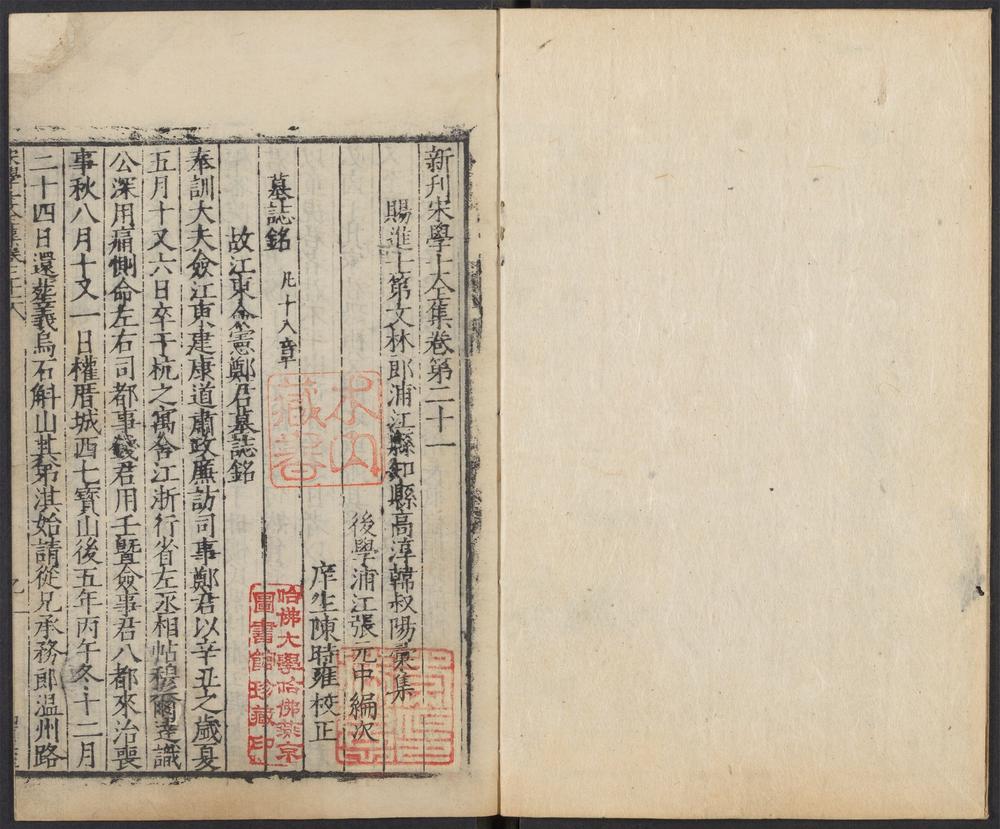 新刊宋學士全集卷第二十一
賜進士第文林郎浦江縣知縣高淳韓叔陽彙集
後學浦江張元中編次
庠生陳時雍校正
墓誌銘 凡十八章
故江東僉憲鄭君墓誌銘
奉訓大夫僉江東建康道肅政廉訪司事鄭君以辛丑之歲夏
五月十又六日卒于杭之寓舍江浙行省左丞相帖穆爾達識
公深用痛惻命左右司都事錢君用壬暨僉事君八都來治喪
事秋八月十又一日權厝城西七寶山後五年丙午冬十二月
二十四日還塟義烏石斛山其弟淇始請從兄承務郎溫州路
哈佛大學哈佛燕京
圖書館珍藏印
藏書